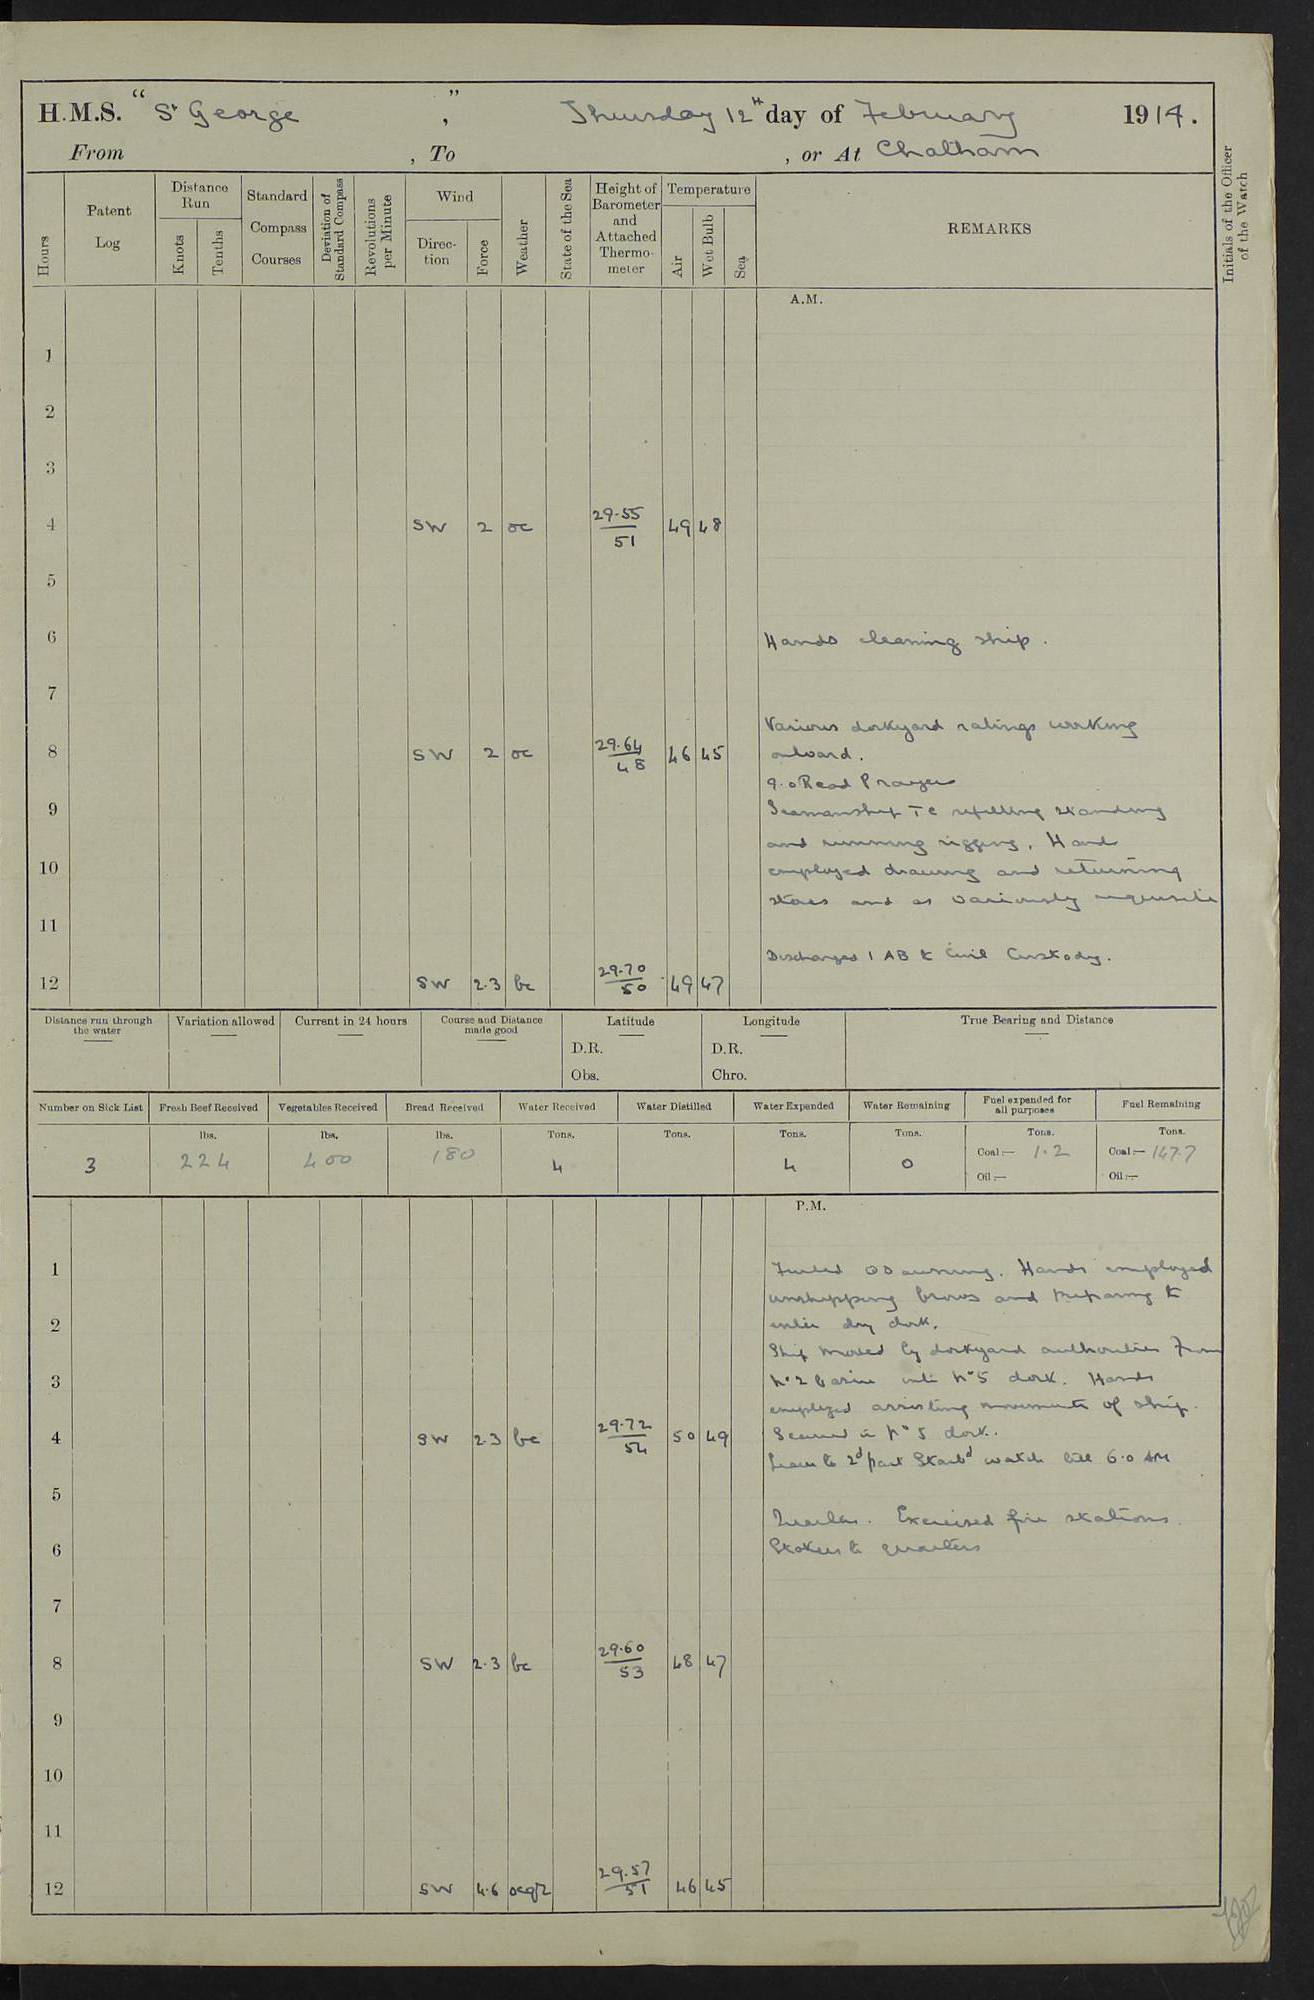 H.M.S. "St George", Thursday 12th day of February 1914.
From , To , or At Chatham
Hours
Patent Log
Distance Run
Knots
Tenths
Standard Compass Courses
Deviation of Standard Compass
Revolutions per Minute
Wind
Direction
Force
Weather
State of the Sea
Height of Barometer and Attached Thermometer
Temperature
Air
Wet Bulb
Sea
REMARKS
Initials of the Officer of the Watch
A.M.
1
2
3
4 SW 2 oc 29.55/51 49 48
5
6 Hands cleaning ship.
7
Various dockyard ratings working
8 SW 2 oc 29.64/48 46 45 onboard.
9.0 Read Prayers
9 Seamanship TC refitting standing
and running rigging. Hands
10 employed drawing and returning
stores and as variously requisite
11
Discharged 1 AB to Civil Custody.
12 SW 2.3 bc 29.70/50 49 47
Distance run through the water
Variation allowed
Current in 24 hours
Course and Distance made good
Latitude
D.R.
Obs.
Longitude
D.R.
Chro.
True Bearing and Distance
Number on Sick List
Fresh Beef Received
Vegetables Received
Bread Received
Water Received
Water Distilled
Water Expended
Water Remaining
Fuel expended for all purposes
Fuel Remaining
lbs. lbs. lbs. Tons. Tons. Tons. Tons. Tons. Tons.
3 224 400 180 4 4 0 Coal:— 1.2 Coal:— 1477
Oil:— Oil:—
P.M.
1 Furled QD awning. Hands employed
unshipping brows and preparing to
2 enter dry dock.
Ship moved by dockyard authorities from
3 No 2 basin into No 5 dock. Hands
employed assisting movements of ship.
4 SW 2.3 bc 29.72/54 50 49 Secured in No 5 dock.
Leave to 2d part Starbd watch till 6.0 AM
5
Quarters. Exercised fire stations.
6 Stokers to quarters
7
8 SW 2.3 bc 29.60/53 48 47
9
10
11
12 SW 4.6 ocqr 29.57/51 46 45